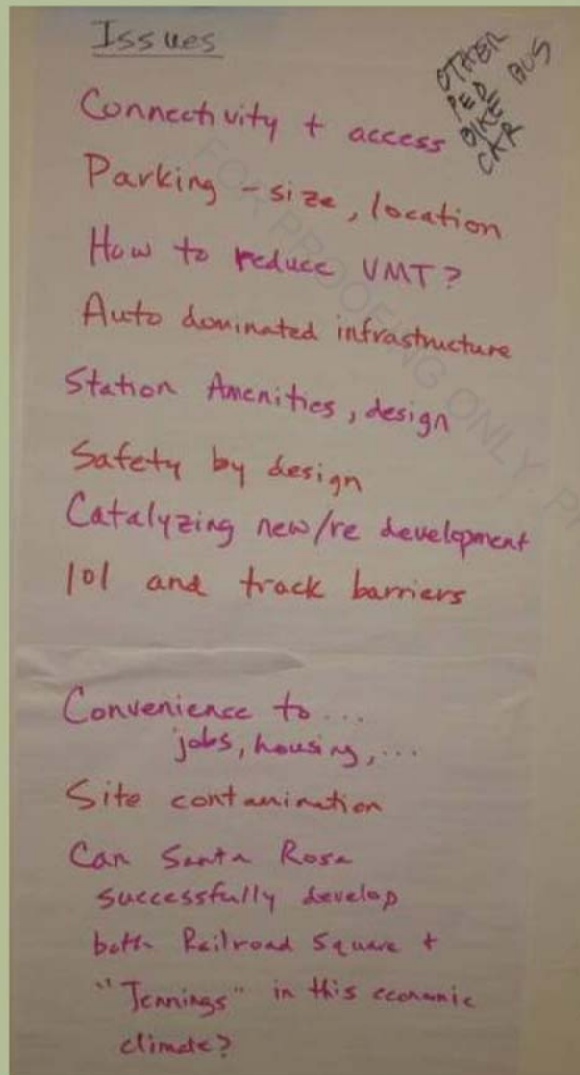 Issues
OTHER
BUS
PED
BIKE
CAR
Connectivity + access
Parking - size, location
How to reduce VMT?
Auto dominated infrastructure
Station Amenities, design
Safety by design
Catalyzing new/re development
101 and track barriers
Convenience to...
jobs, housing,...
Site contamination
Can Santa Rosa
successfully develop
both Railroad Square +
"Jennings" in this economic
climate?
FOR PROOFING ONLY.